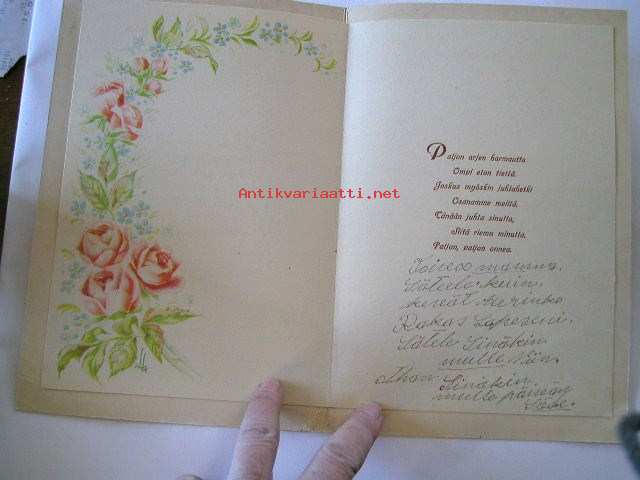 Antikvariaatti.net
Paljon arjen harmautta
Ompi elon tiellä.
Joskus myöskin juhlahetki
Osanamme meillä.
Tänään juhla sinulla,
Siitä riemu minulla.
Paljon, paljon onnea.
Toivoo mamma.
kevät Aurinko
Rakas Lapseni.
Sinäkin
mulle Niin.
Ihan Sinäkin
mulle